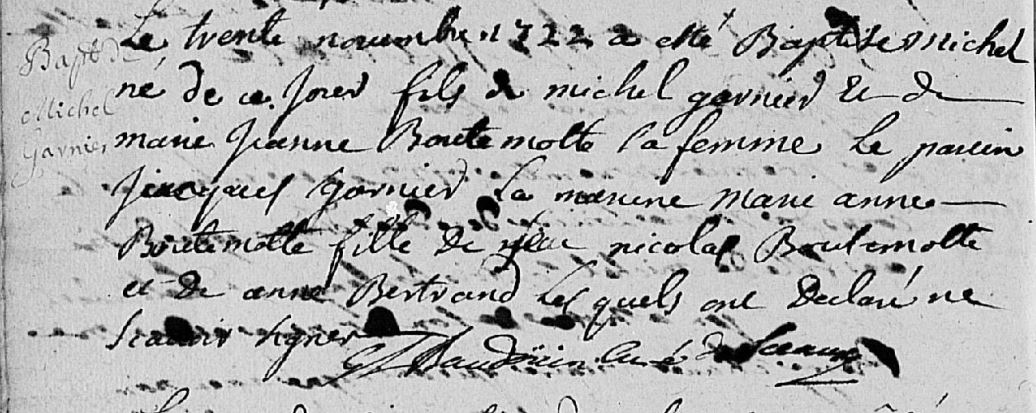 Bapt de
Michel
Garnier
Le trente novembre 1722 a esté Baptisé michel
né de ce Jour fils de michel garnier Et de
marie Jeanne Boutemotte sa femme Le parein
Jacques garnier La mareine marie anne
Boutemotte fille de feu nicolas Boutemotte
et de anne Bertrand Les quels ont declaré ne
scavoir signer
Baudoüin curé de Sceaux